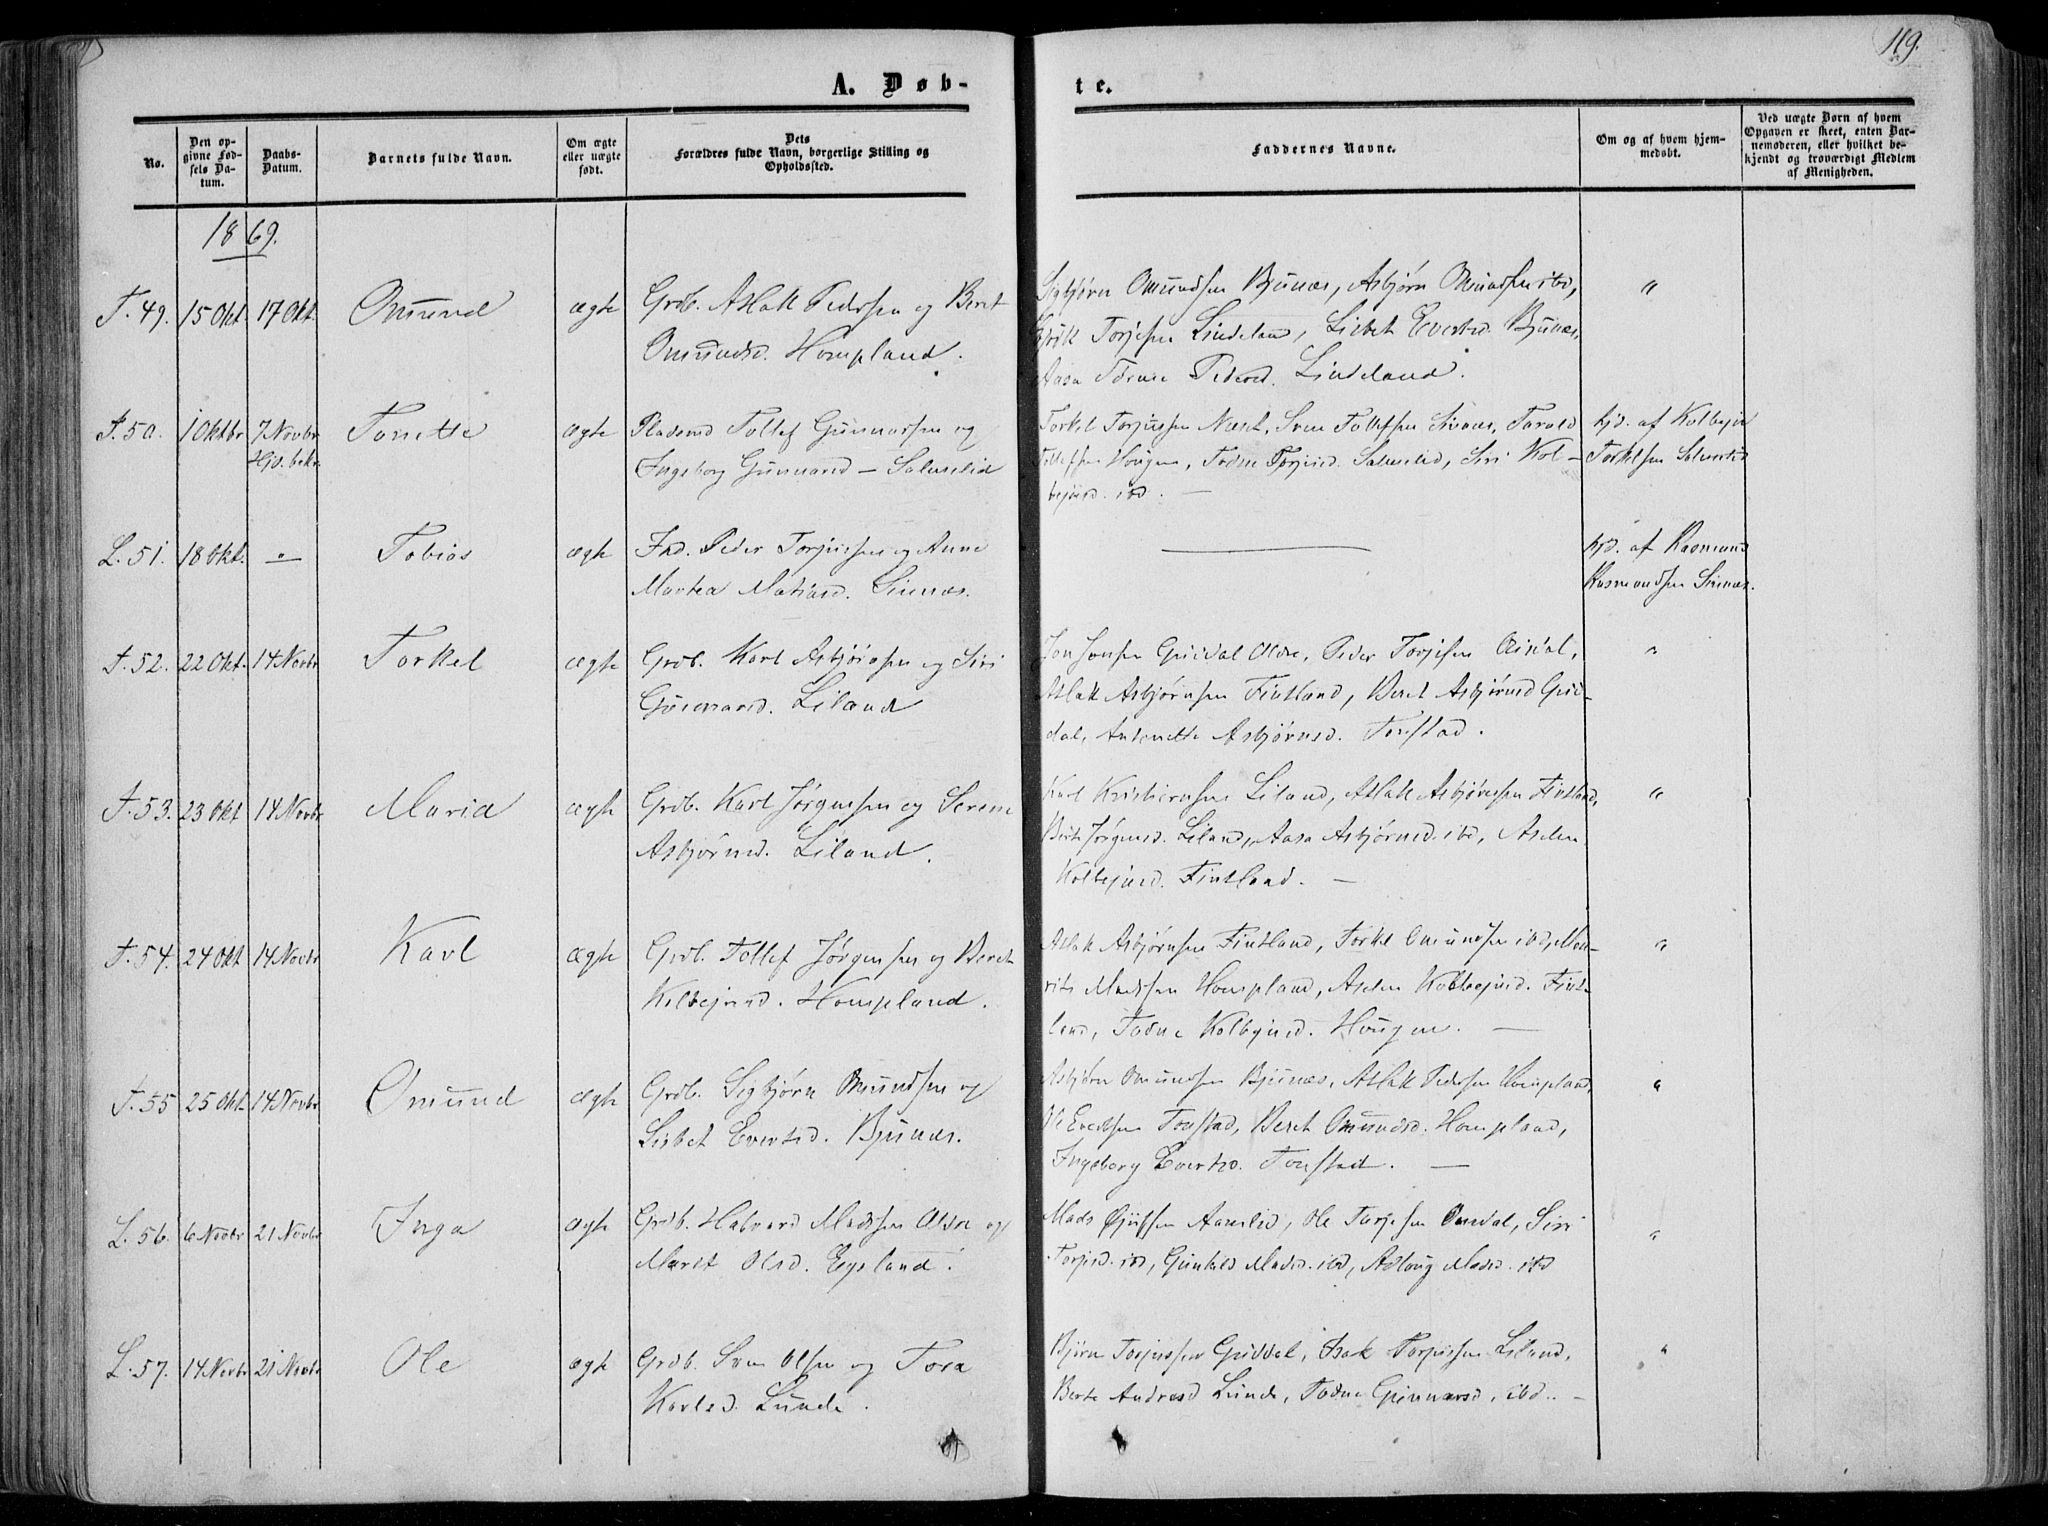 119.
A. Døb-
te.
No.
Den op-
givne Fød-
sels Da-
tum.
Daabs-
Datum.
Barnets fulde Navn.
Om ægte
eller uægte
født.
Dets
Forældres fulde Navn, borgerlige Stilling og
Opholdssted.
Faddernes Navne.
Om og af hvem hjem-
medøbt.
Ved uægte Børn af hvem
Opgaven er skeet, enten Bar-
nemoderen, eller hvilket be-
kjendt og troværdigt Medlem
af Menigheden.
1869.
T. 49. 15 Okt. 17 Okt. Omund ægte Grdb. Aslak Pedersen og Beret
Omundsd. Hompland.
Sigbjørn Omundsen Bjunæs, Asbjørn Omundsen ibd, "
Torjesen Lindeland, Lisbet Evertsd. Bjunæs,
Aasa Tørine Pedersd. Lindeland.
T. 50. 1 Oktbr 7 Novbr Tonette ægte Pladsmd Tollef Gunnarsen og
Hjd. bekr.
Ingeborg Gunnarsd — Salmelid
Torkel Torjussen Næset, Sven Tollefsen Sinnæs, Tarald hjd. af Kolbejn
Tollefsen Hougen, Todne Torjusd. Salmelid, Siri Kol- Torkelsen Salmelid
bejnsd. ibd. —
L. 51. 18 Okt. — Tobias ægte Ind. Peder Torjussen og Anne
Martea Matiasd. Sinnæs.
hjd. af Rasmund
Rasmundsen Sinnæs.
T. 52. 22 Okt. 14 Novbr Torkel ægte Grdb. Karl Asbjørnsen og Siri
Gunnarsd. Liland
Jon Jonsen Guddal Øvre, Peder Torjesen Øisdal, "
Aslak Asbjørnsen Fintland, Beret Asbjørnsd Gud-
dal, Antonette Asbjørnsd. Tonstad.
T. 53. 23 Okt 14 Novbr Maria ægte Grdb. Karl Jørgensen og Serene
Asbjørnsd. Liland.
Karl Kristiensen Liland, Aslak Asbjørnsen Fintland, "
Berte Jørgensd. Liland, Aasa Asbjørnsd. ibd, Aselen
Kolbejnsd. Fintland. —
T. 54. 24 Okt 14 Novbr Karl ægte Grdb. Tollef Jørgensen og Beret
Kolbejnsd. Hompland.
Aslak Asbjørnsen Fintland, Torkel Omundsen ibd, Mau- "
rits Madssen Hompland, Aselen Kolbejnsd. Fint-
land, Todne Kolbejnsd. Hougen. —
T. 55 25 Okt. 14 Novbr Omund ægte Grdb. Sigbjørn Omundsen og
Lisbet Evertsd. Bjunæs.
Asbjørn Omundsen Bjunæs, Aslak Pedersen Hompland, "
Ole Evertsen Tonstad, Beret Omundsd. Hompland,
Ingeborg Evertsd. Tonstad. —
L. 56. 6 Novbr 21 Novbr Inga ægte Grdb. Halvard Madssen Øvre og
Maret Olsd. Egeland.
Mads Aamlid, Ole Torjesen Omdal, Siri "
Torjusd. ibd, Gunhild Madsd. ibd, Aslaug Madsd. ibd
L. 57. 14 Novbr 21 Novbr Ole ægte Grdb. Sven Olsen og Tora
Karlsd. Lunde.
Bjørn Torjussen Guddal, Isak Torjussen Liland, "
Berte Andreasd Lunde, Todne Gunnarsd, ibd. —